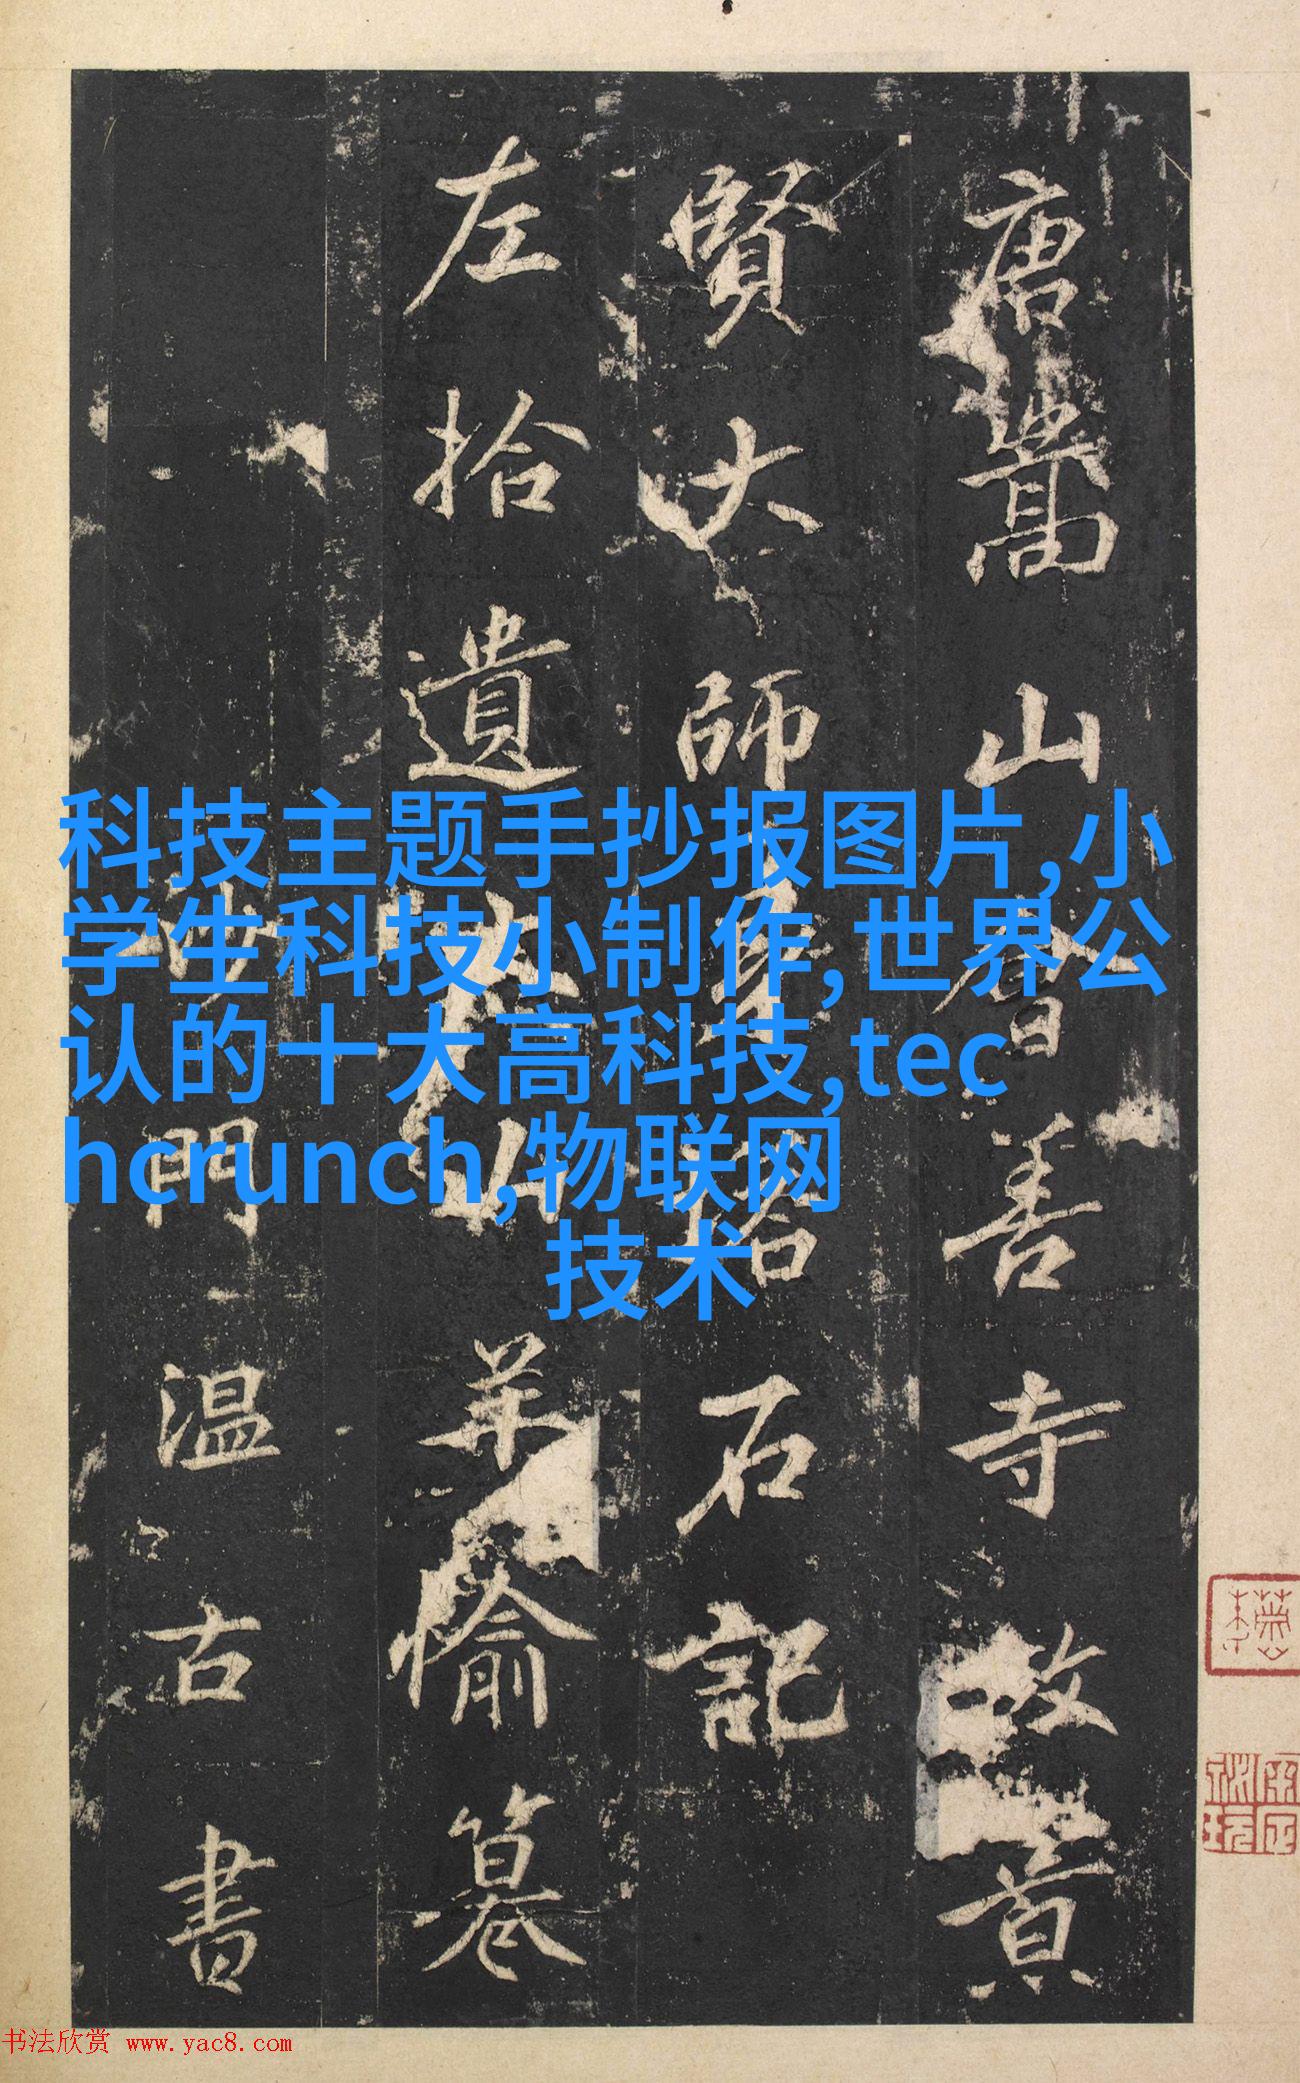 唐嵩山會善寺故景
賢大師身塔石記
左拾遺太山羊愉
沙門溫古書
科技主题手抄报图片,小
学生科技小制作,世界公
认的十大高科技,tec
hcrunch,物联网
技术
书法欣赏 www.yac8.com